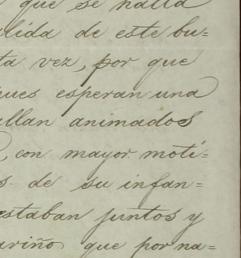 que se halla
lida de este bu=
ta vez, por que
ques esperan una
llan animados
, con mayor moti=
s de su infan=
estaban juntos y
ariño que por na=